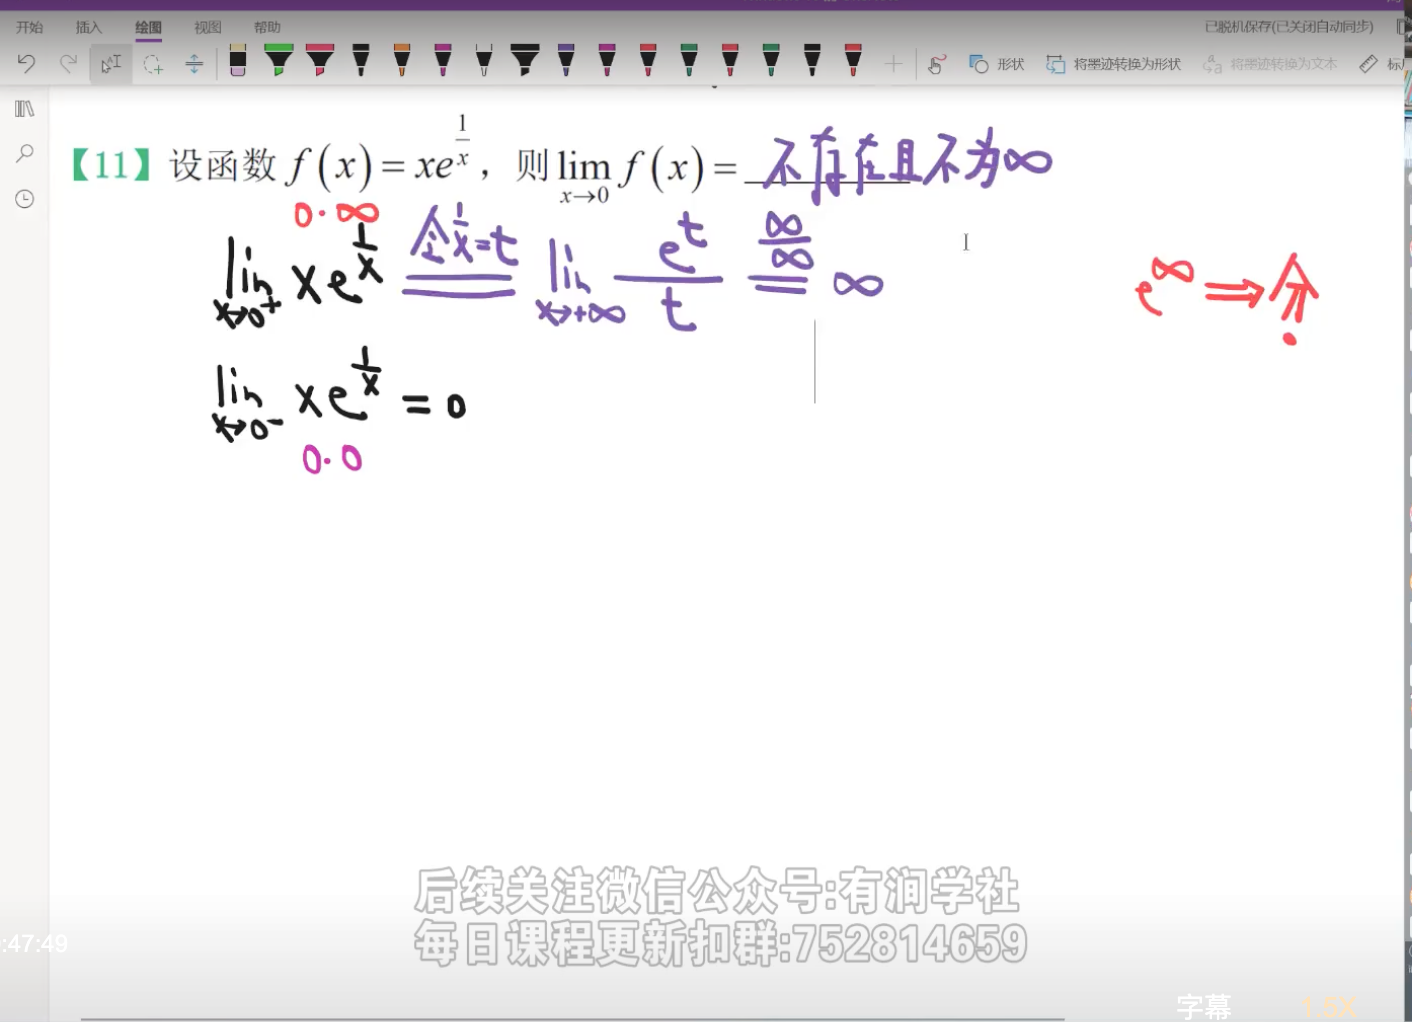 开始 插入 绘图 视图 帮助 已脱机保存(已关闭自动同步)
形状 将墨迹转换为形状 将墨迹转换为文本
【11】设函数 f(x)=xe^{1/x}，则 lim_{x→0} f(x)= 不存在且不为∞
0·∞
lim_{x→0^+} xe^{1/x} 令1/x=t lim_{x→+∞} e^t/t ∞/∞ = ∞
e^∞ ⇒ 分
lim_{x→0^-} xe^{1/x} = 0
0·0
后续关注微信公众号:有润学社
每日课程更新扣群:752814659
:47:49
字幕 1.5X